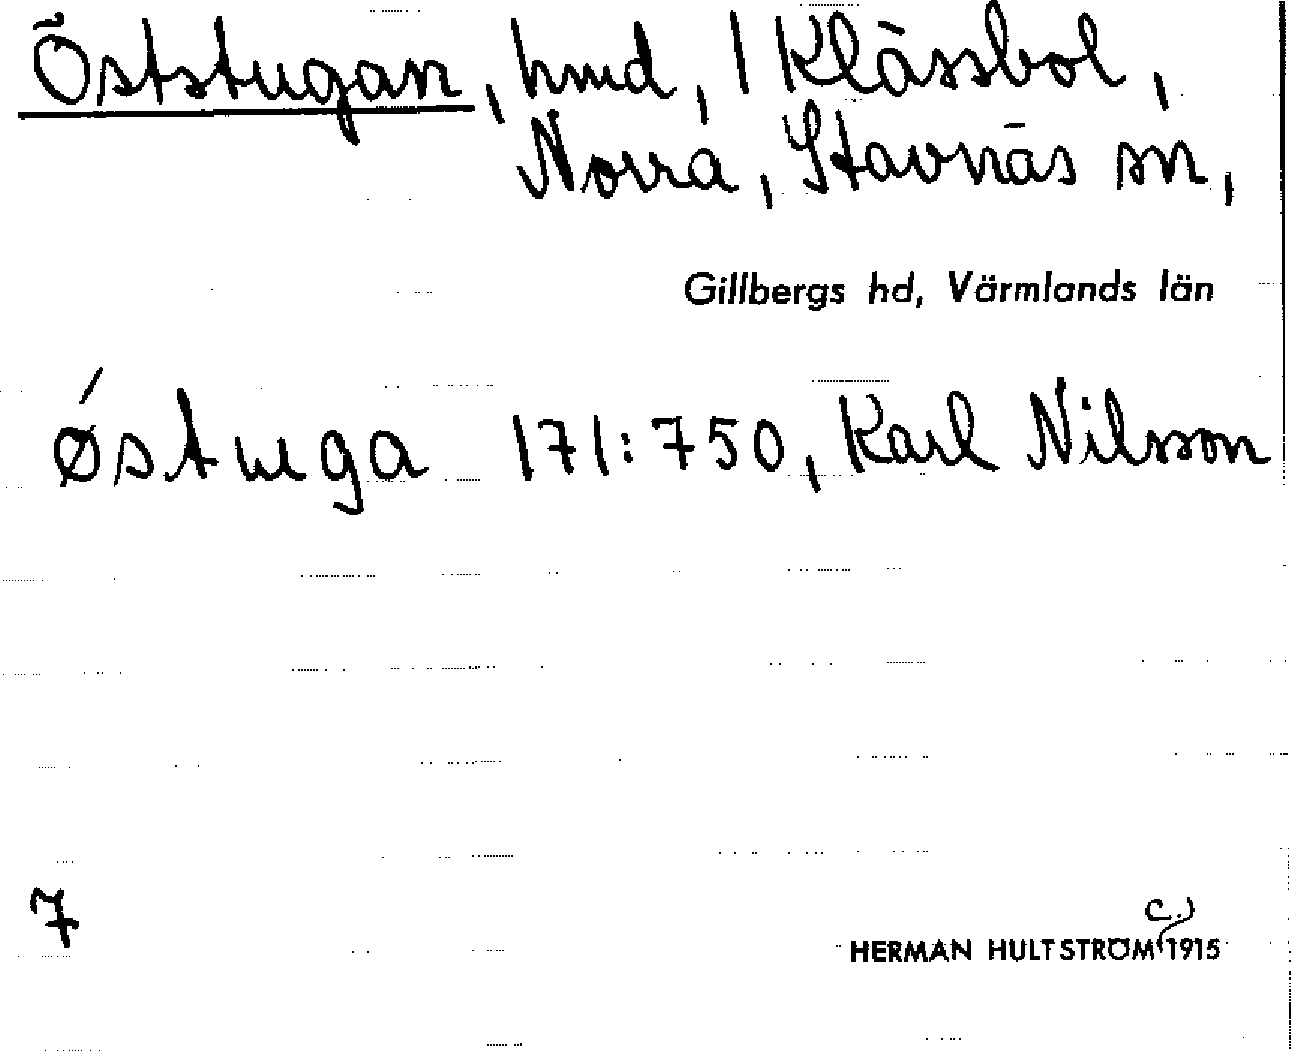 Öststugan, hmd, 1 Klässbol,
Norra, Stavnäs sn,
Gillbergs hd, Värmlands län
ǿstuga 171:750, Karl Nilsson
7
c.)
HERMAN HULTSTRÖM 1915